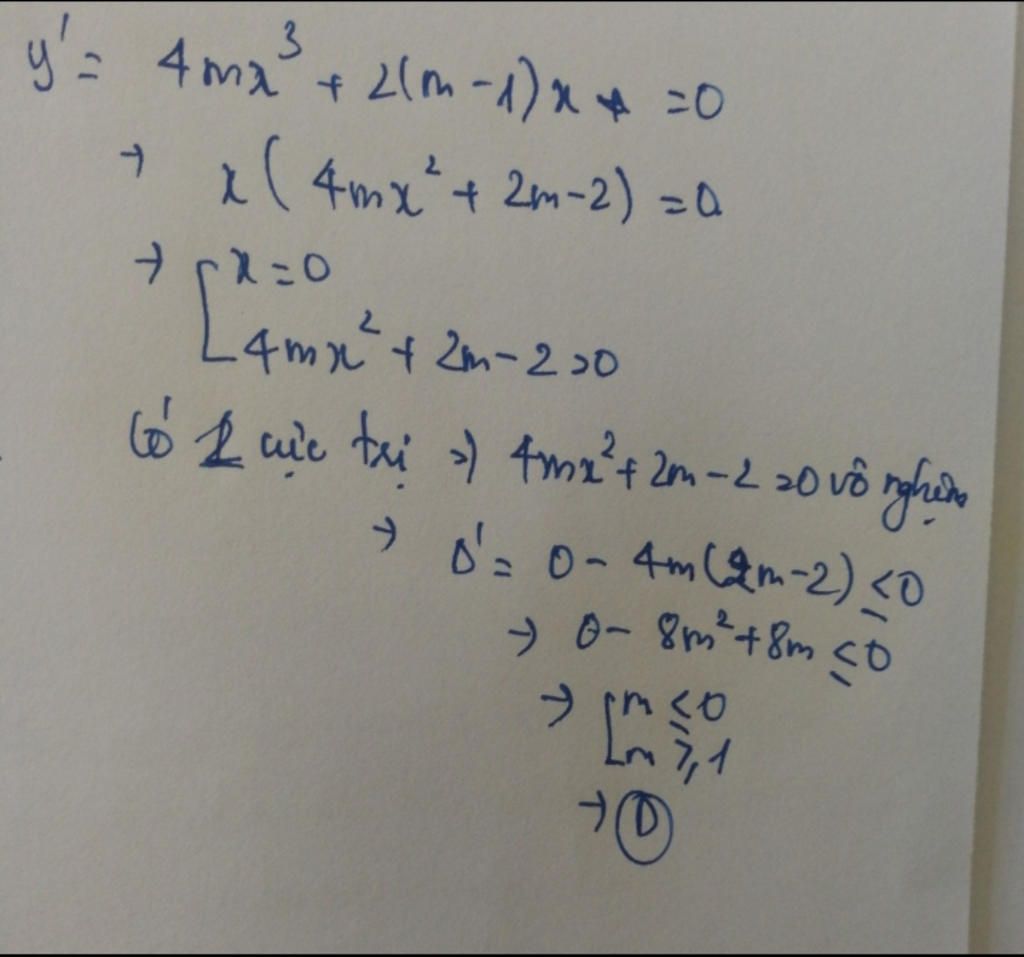 y' = 4mx³ + 2(m-1)x = 0
→ x(4mx² + 2m-2) = 0
→ [ x = 0
4mx² + 2m - 2 = 0
Có 1 cực trị => 4mx² + 2m - 2 = 0 vô nghiệm
→ Δ' = 0 - 4m(2m-2) ≤ 0
→ 0 - 8m² + 8m ≤ 0
→ [ m ≤ 0
m ≥ 1
→ D